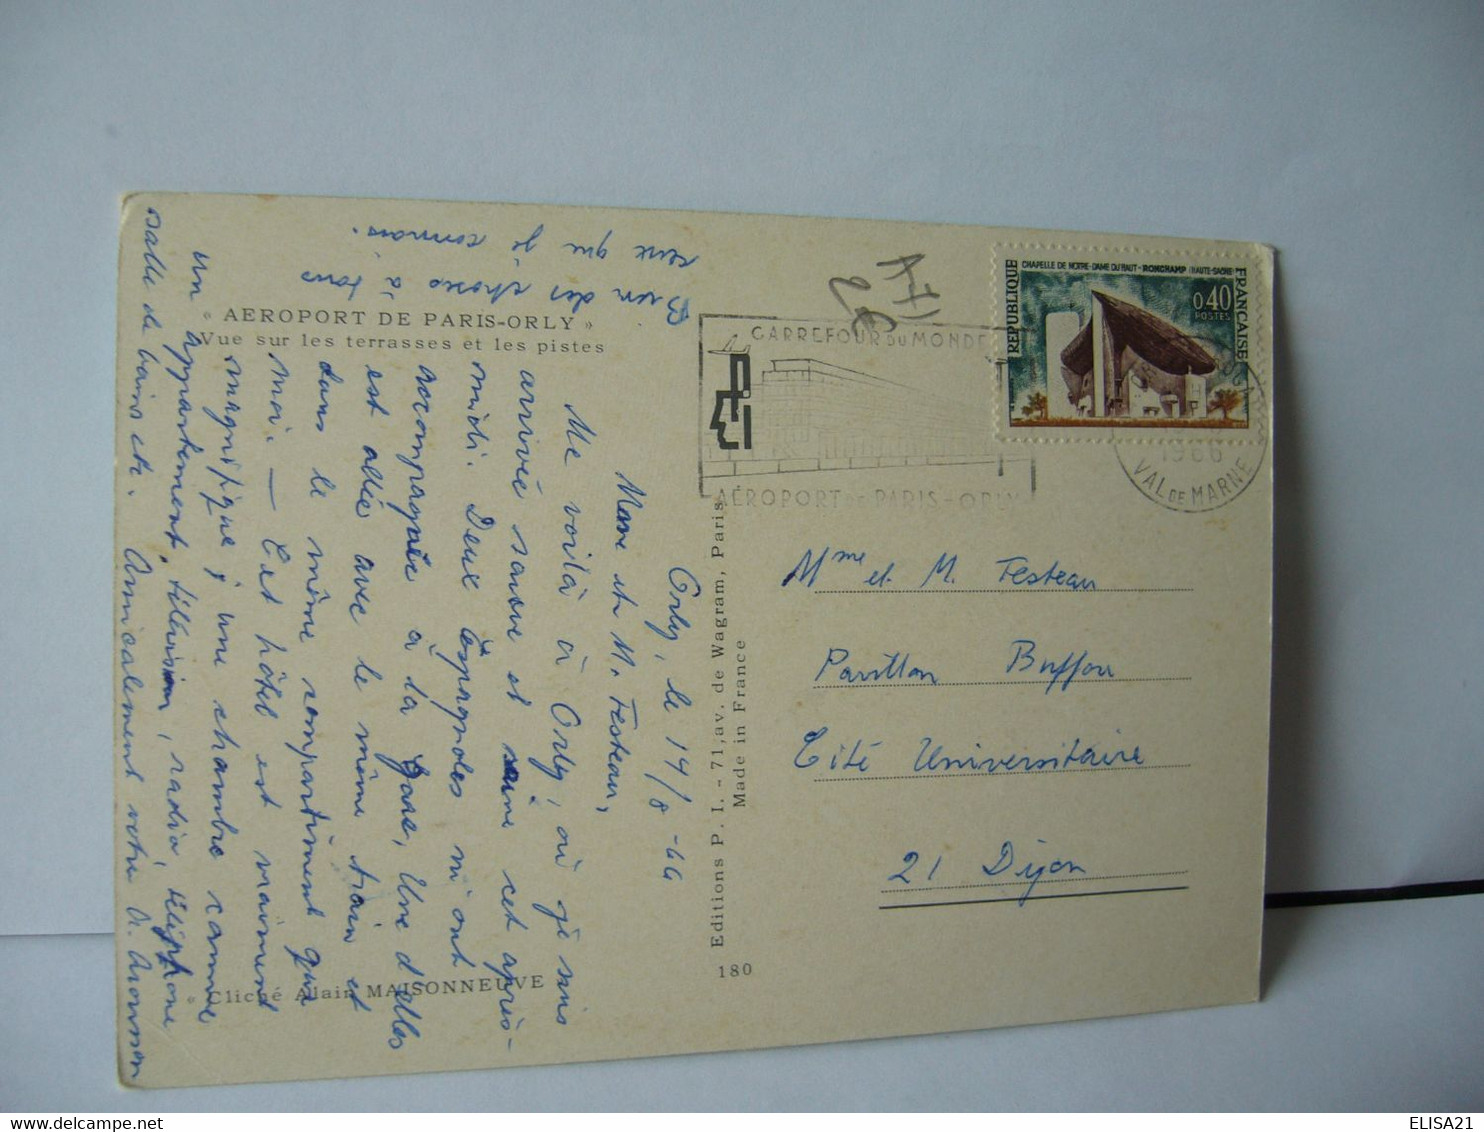 « AEROPORT DE PARIS-ORLY »
Vue sur les terrasses et les pistes
Orly, le 14/8 - 66
Mme et M. Festeau,
Me voilà à Orly, où je suis
arrivée sauve et saine cet après-
midi. Deux Espagnoles m'ont
accompagnée à la gare, Une d'elles
est allée avec le même train et
dans le même compartiment que
moi. — Cet hôtel est vraiment
magnifique, une chambre comme
un appartement, télévision, radio, téléphone
salle de bains etc. Amicalement votre
Bien des choses à tous
ceux que je connais.
* Cliché Alain MAISONNEUVE
Editions P. I. - 71, av. de Wagram, Paris
Made in France
180
CARREFOUR DU MONDE
AÉROPORT DE PARIS-ORLY
REPUBLIQUE FRANÇAISE
CHAPELLE DE NOTRE-DAME DU HAUT - RONCHAMP (HAUTE-SAÔNE)
0,40
POSTES
1966
VAL DE MARNE
Mme et M. Festeau
Pavillon Buffon
Cité Universitaire
21 Dijon
ELISA21